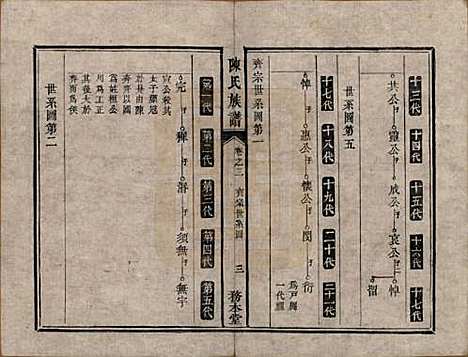 十三代 十四代 十五代 十六代 十七代
共公 子 靈公 子 成公 子 哀公 子 悼
招
世系圖第五
十七代 十八代 十九代 二十代 二十一代
悼 子 惠公 子 懷公 子 閔 子 衍
為戶牖
一代祖
齊宗世系圖第一
陳氏族譜 卷之三 齊宗世系圖 三 務本堂
第一代 第二代 第三代 第四代 第五代
完 子 穉 子 湣 子 須無 子 無宇
宣公殺其
太子禦寇
於是由陳
奔齊以國
為姓桓公
用為工正
其後大於
齊而為侯
世系圖第二